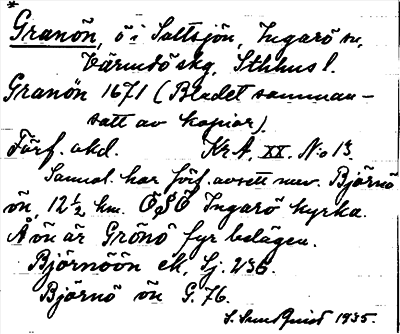 *
Granön, ö i Saltsjön, Ingarö sn,
Värmdö skg, Sthlms l.
Granön 1671 (Bladet samman-
satt av kopior)
Förf. okd. Kr A. XX. No 13.
Sannol. har förf. avsett nuv. Björnö
ön, 12½ km. ÖSÖ Ingarö kyrka.
Å ön är Grönö fyr belägen.
Björnöön ek. Sj. 236.
Björnö ön G. 76.
1935.